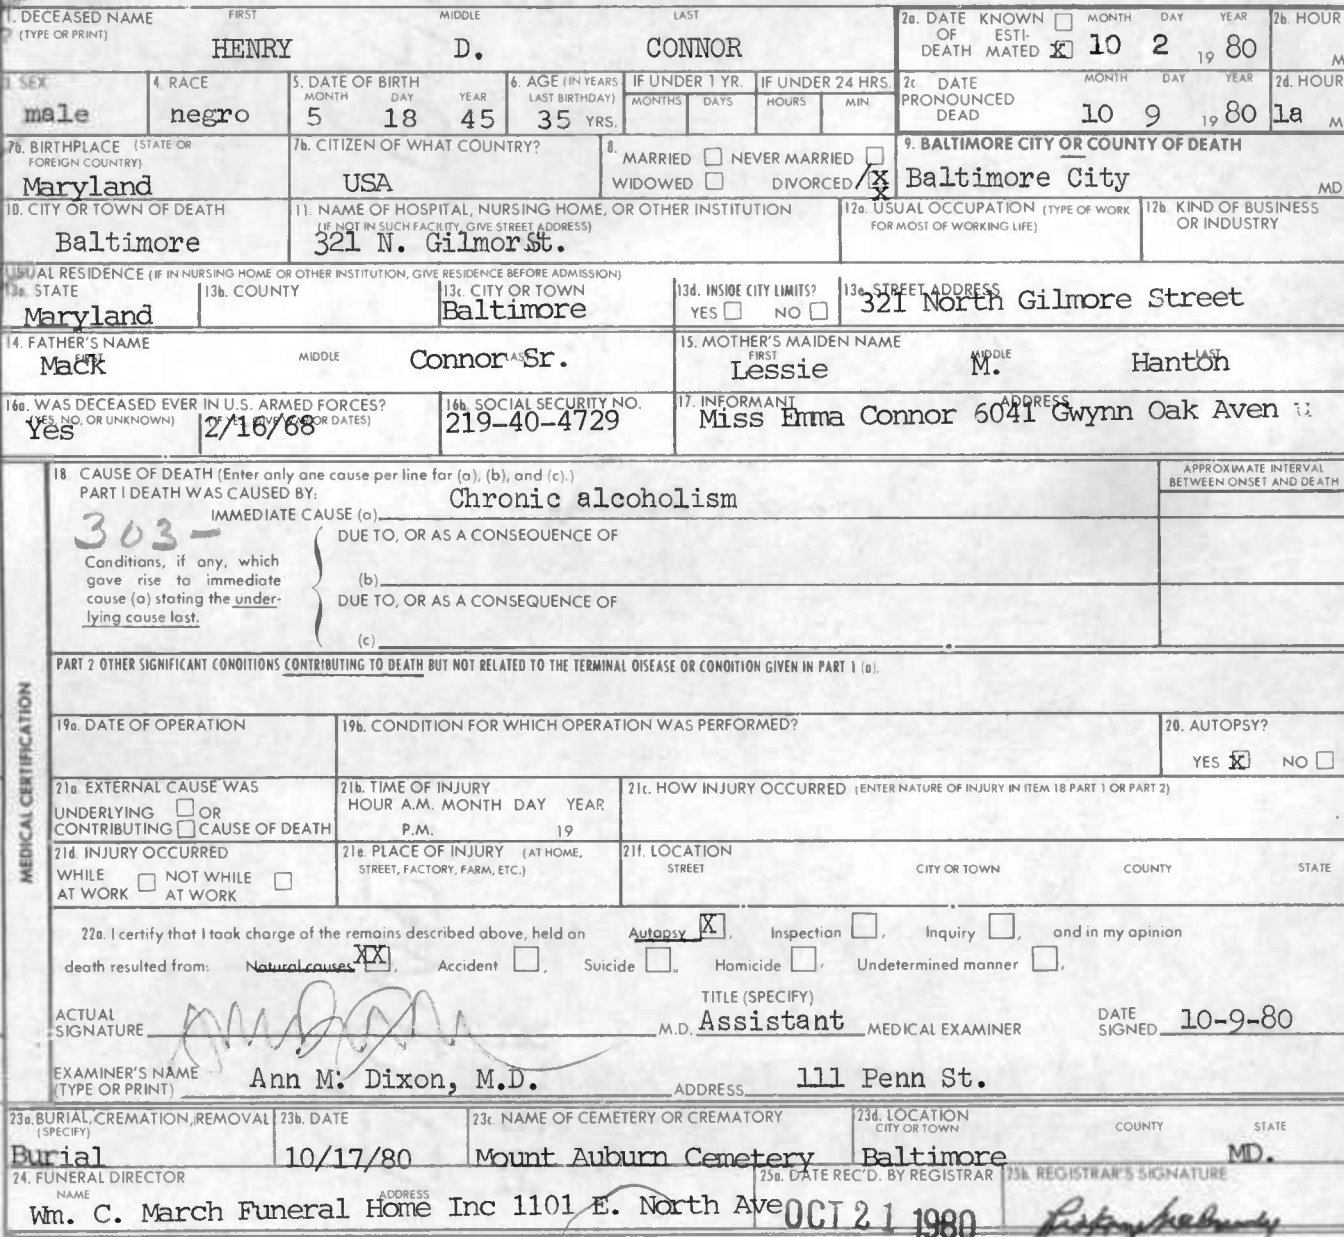 1. DECEASED NAME FIRST MIDDLE LAST
(TYPE OR PRINT)
HENRY D. CONNOR
2a. DATE KNOWN ☐ MONTH DAY YEAR
OF ESTI-
DEATH MATED ☒ 10 2 19 80
2b. HOUR
M
3. SEX
male
4. RACE
negro
5. DATE OF BIRTH
MONTH DAY YEAR
5 18 45
6. AGE (IN YEARS
LAST BIRTHDAY)
35 YRS.
IF UNDER 1 YR.
MONTHS DAYS
IF UNDER 24 HRS.
HOURS MIN
2c DATE MONTH DAY YEAR
PRONOUNCED
DEAD 10 9 19 80
2d. HOUR
1a M
7a. BIRTHPLACE (STATE OR
FOREIGN COUNTRY)
Maryland
7b. CITIZEN OF WHAT COUNTRY?
USA
8.
MARRIED ☐ NEVER MARRIED ☐
WIDOWED ☐ DIVORCED ☒
9. BALTIMORE CITY OR COUNTY OF DEATH
Baltimore City MD
10. CITY OR TOWN OF DEATH
Baltimore
11. NAME OF HOSPITAL, NURSING HOME, OR OTHER INSTITUTION
(IF NOT IN SUCH FACILITY, GIVE STREET ADDRESS)
321 N. Gilmor St.
12a. USUAL OCCUPATION (TYPE OF WORK
FOR MOST OF WORKING LIFE)
12b. KIND OF BUSINESS
OR INDUSTRY
USUAL RESIDENCE (IF IN NURSING HOME OR OTHER INSTITUTION, GIVE RESIDENCE BEFORE ADMISSION)
13a. STATE
Maryland
13b. COUNTY
13c. CITY OR TOWN
Baltimore
13d. INSIDE CITY LIMITS?
YES ☐ NO ☐
13e. STREET ADDRESS
321 North Gilmore Street
14. FATHER'S NAME
FIRST MIDDLE LAST
Mack Connor Sr.
15. MOTHER'S MAIDEN NAME
FIRST MIDDLE LAST
Lessie M. Hanton
16a. WAS DECEASED EVER IN U.S. ARMED FORCES?
(YES, NO, OR UNKNOWN) (IF YES, GIVE WAR OR DATES)
Yes 2/16/68
16b. SOCIAL SECURITY NO.
219-40-4729
17. INFORMANT ADDRESS
Miss Emma Connor 6041 Gwynn Oak Aven u
MEDICAL CERTIFICATION
18 CAUSE OF DEATH (Enter only one cause per line for (a), (b), and (c).)
PART I DEATH WAS CAUSED BY:
IMMEDIATE CAUSE (a) Chronic alcoholism
303-
APPROXIMATE INTERVAL
BETWEEN ONSET AND DEATH
Conditions, if any, which
gave rise to immediate
cause (a) stating the under-
lying cause last.
DUE TO, OR AS A CONSEQUENCE OF
(b)
DUE TO, OR AS A CONSEQUENCE OF
(c)
PART 2 OTHER SIGNIFICANT CONDITIONS CONTRIBUTING TO DEATH BUT NOT RELATED TO THE TERMINAL DISEASE OR CONDITION GIVEN IN PART 1 (a).
19a. DATE OF OPERATION
19b. CONDITION FOR WHICH OPERATION WAS PERFORMED?
20. AUTOPSY?
YES ☒ NO ☐
21a EXTERNAL CAUSE WAS
UNDERLYING ☐ OR
CONTRIBUTING ☐ CAUSE OF DEATH
21b. TIME OF INJURY
HOUR A.M. MONTH DAY YEAR
P.M. 19
21c. HOW INJURY OCCURRED (ENTER NATURE OF INJURY IN ITEM 18 PART 1 OR PART 2)
21d. INJURY OCCURRED
WHILE ☐ NOT WHILE ☐
AT WORK AT WORK
21e. PLACE OF INJURY (AT HOME,
STREET, FACTORY, FARM, ETC.)
21f. LOCATION
STREET CITY OR TOWN COUNTY STATE
22a. I certify that I took charge of the remains described above, held an Autopsy ☒, Inspection ☐, Inquiry ☐, and in my opinion
death resulted from: Natural causes XX, Accident ☐, Suicide ☐, Homicide ☐, Undetermined manner ☐.
ACTUAL
SIGNATURE M.D.
TITLE (SPECIFY)
Assistant MEDICAL EXAMINER
DATE
SIGNED 10-9-80
EXAMINER'S NAME
(TYPE OR PRINT) Ann M. Dixon, M.D.
ADDRESS 111 Penn St.
23a. BURIAL, CREMATION, REMOVAL
(SPECIFY)
Burial
23b. DATE
10/17/80
23c. NAME OF CEMETERY OR CREMATORY
Mount Auburn Cemetery
23d. LOCATION
CITY OR TOWN COUNTY STATE
Baltimore MD.
24. FUNERAL DIRECTOR
NAME ADDRESS
Wm. C. March Funeral Home Inc 1101 E. North Ave
25a. DATE REC'D. BY REGISTRAR
OCT 21 1980
25b. REGISTRAR'S SIGNATURE